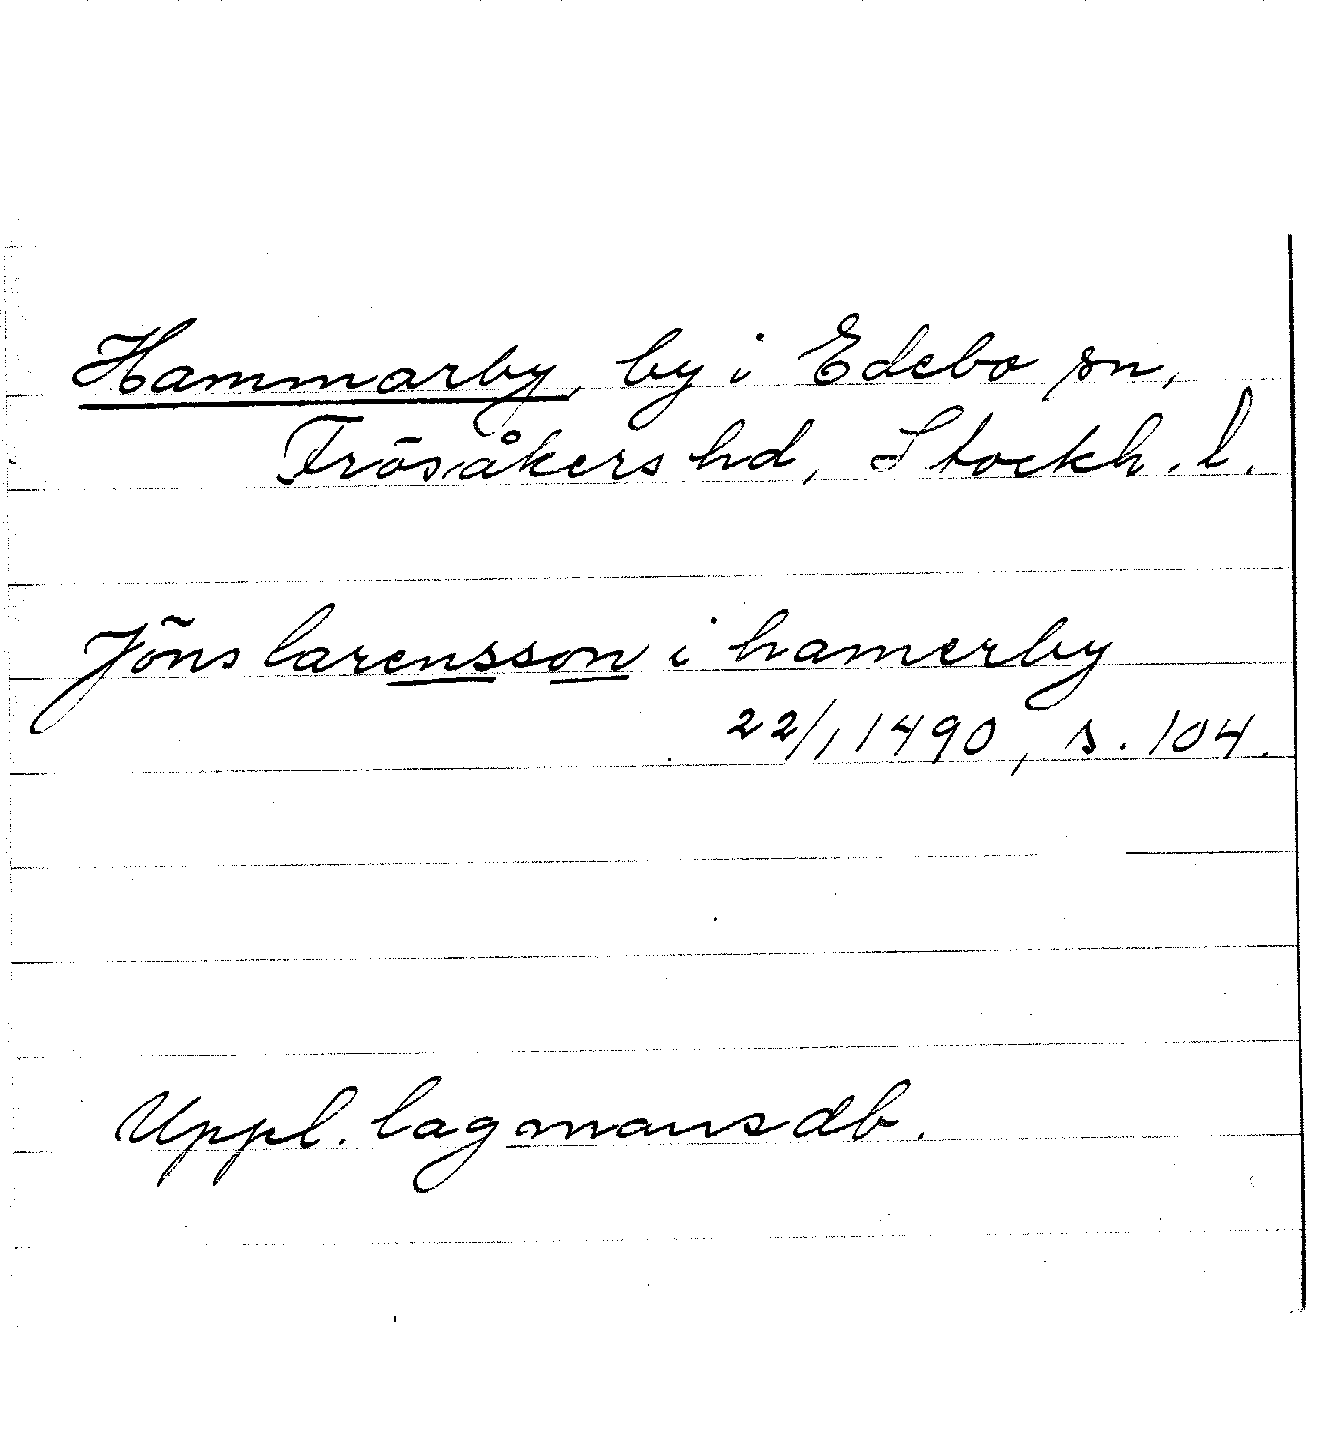 Hammarby, by i Edebo sn,
Frösåkers hd, Stockh. l.
Jöns larensson i hamerby
22/1 1490, s. 104.
Uppl. lagmansdb.